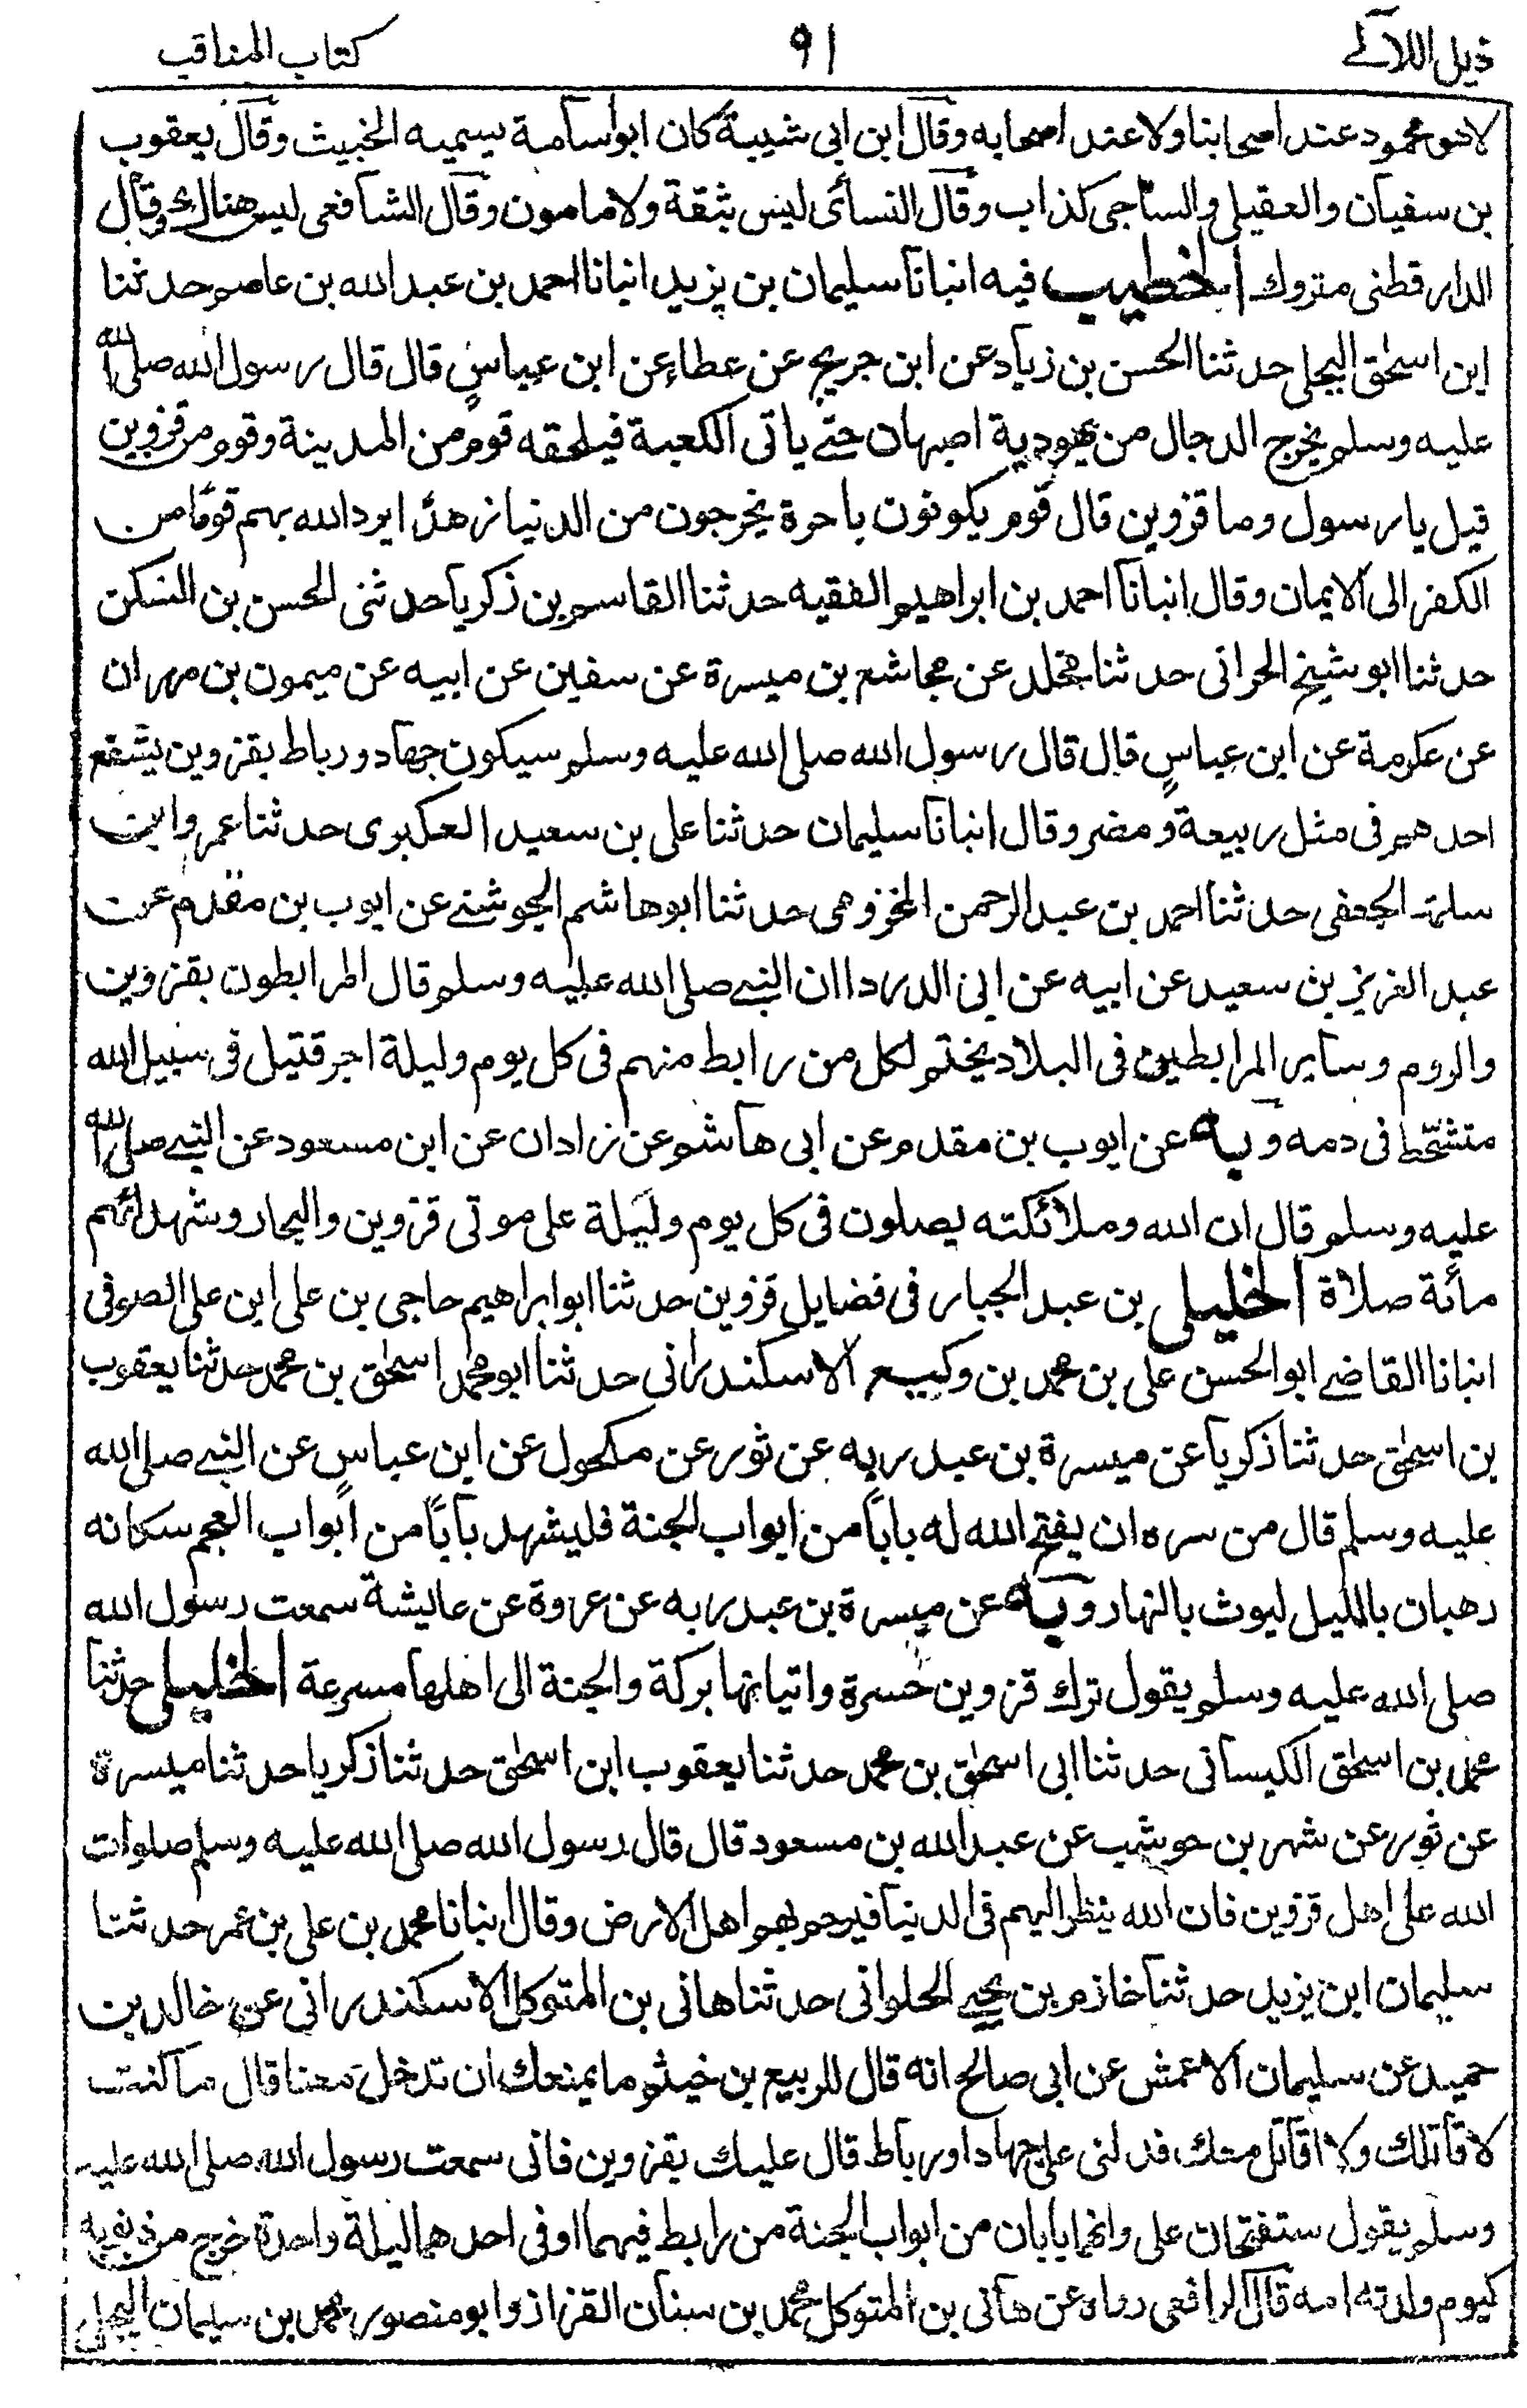 ذيل اللآلے ٩١ كتاب المناقب
لاهو محمود عند اصحابنا ولا عند اصحابه وقال ابن ابى شيبة كان ابو اسامة يسميه الخبيث وقال يعقوب
بن سفيان والعقيلى والساجى كذاب وقال النسائى ليس بثقة ولا مامون وقال الشافعى ليس هناك وقال
الدارقطنى متروك الخطيب فيه انبانا سليمان بن يزيد انبانا احمد بن عبد الله بن عاصم حدثنا
ابن اسحٰق البجلى حدثنا الحسن بن زياد عن ابن جريج عن عطاء عن ابن عباسٍ قال قال رسول الله صلى الله
عليه وسلم يخرج الدجال من يهودية اصبهان حتے ياتى الكعبة فيلحقه قوم من المدينة وقوم من قزوين
قيل يا رسول وما قزوين قال قوم يكونون باحرة يخرجون من الدنيا زهدًا يرد الله بهم قومًا من
الكفر الى الايمان وقال انبانا احمد بن ابراهيم الفقيه حدثنا القاسم بن ذكريا حدثنى الحسن بن السكن
حدثنا ابو شيخ الحرانى حدثنا مخلد عن مجاشع بن ميسرة عن سفين عن ابيه عن ميمون بن مهران
عن عكرمة عن ابن عباسٍ قال قال رسول الله صلى الله عليه وسلم سيكون جهاد ورباط بقزوين يشفع
احدهم فى مثل ربيعة ومضر وقال انبانا سليمان حدثنا على بن سعيد العكبرى حدثنا عمرو ابن
سلمة الجعفى حدثنا احمد بن عبد الرحمن المخزومى حدثنا ابو هاشم الجوشنے عن ايوب بن مقدم عن
عبد العزيز بن سعيد عن ابيه عن ابى الدرداان النبے صلى الله عليه وسلم قال المرابطون بقزوين
والروم وساير المرابطين فى البلاد يختم لكل من رابط منهم فى كل يوم وليلة اجر قتيل فى سبيل الله
متشحّطا فى دمه وبه عن ايوب بن مقدم عن ابى هاشم عن زادان عن ابن مسعود عن النبے صلى الله
عليه وسلم قال ان الله وملائكته يصلون فى كل يوم وليلة على موتى قزوين والبحار وشهدائهم
مائة صلاة الخليلى بن عبد الجبار فى فضايل قزوين حدثنا ابو ابراهيم حاجى بن على ابن على الصوفى
انبانا القاضے ابو الحسن على بن محمد بن وكيع الاسكندرانى حدثنا ابو محمد اسحٰق بن محمد حدثنا يعقوب
بن اسحٰق حدثنا ذكريا عن ميسرة بن عبد ربه عن ثور عن مكحول عن ابن عباسٍ عن النبے صلى الله
عليه وسلم قال من سره ان يفتح الله له بابًا من ابواب الجنة فليشهد بابًا من ابواب العجم سكانه
رهبان بالليل ليوث بالنهار وبه عن ميسرة بن عبد ربه عن عروة عن عايشة سمعت رسول الله
صلى الله عليه وسلم يقول ترك قزوين حسرة واتيانها بركة والجنة الى اهلها مسرعة الخليلى حدثنا
محمد بن اسحٰق الكيسانى حدثنا ابى اسحٰق بن محمد حدثنا يعقوب ابن اسحٰق حدثنا ذكريا حدثنا ميسرة
عن ثور عن شهر بن حوشب عن عبد الله بن مسعود قال قال رسول الله صلى الله عليه وسلم صلوات
الله على اهل قزوين فان الله ينظر اليهم فى الدنيا فيرحم بهم اهل الارض وقال انبانا محمد بن على بن عمر حدثنا
سليمان ابن يزيد حدثنا خازم بن يحيے الحلوانى حدثنا هانى بن المتوكل الاسكندرانى عن خالد بن
حميد عن سليمان الاعمش عن ابى صالح انه قال للربيع بن خيثم ما يمنعك ان تدخل معنا قال ما كنت
لاقاتلك ولا اقاتل معك فدلنى على جهاد او رباط قال عليك بقزوين فانى سمعت رسول الله صلى الله عليه
وسلم يقول ستفتحان على وانهما بابان من ابواب الجنة من رابط فيهما او فى احدهما ليلة واحدة خرج من ذنوبه
كيوم ولدته امه قال الرافعى رواه عن هانى بن المتوكل محمد بن سنان القزاز وابو منصور محمد بن سليمان البجلى